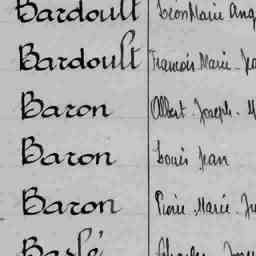 Bardoult Léon Marie Ang
Bardoult François Marie Jea
Baron Albert Joseph M
Baron Louis Jean
Baron Pierre Marie Ju
Baslé Charles